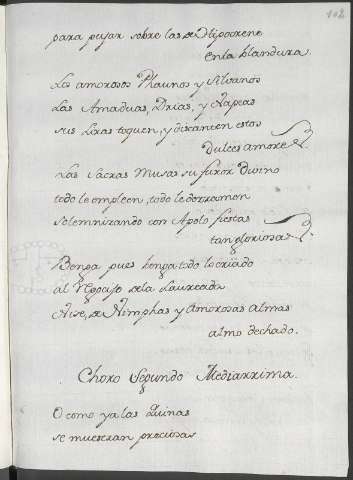 102
para pujar sobre las de Hipocrene
en la blandura.
Los amorosos Phaunos y Silvanos
Las Amaduas, Drias, y Napeas
sus Liras toquen, y discanten estos
dulces amores
Las Sacras Musas su furor Divino
todo le empleen, todo le derramen
solemnizando con Apolo fiestas
tan gloriosas
Benga pues benga todo lo criado
al rregocijo de la Laureada
de Nimphas y Amorosas Almas
almo dechado.
Choro Segundo Mediarrima.
O como ya las Quinas
se muestran preciosas